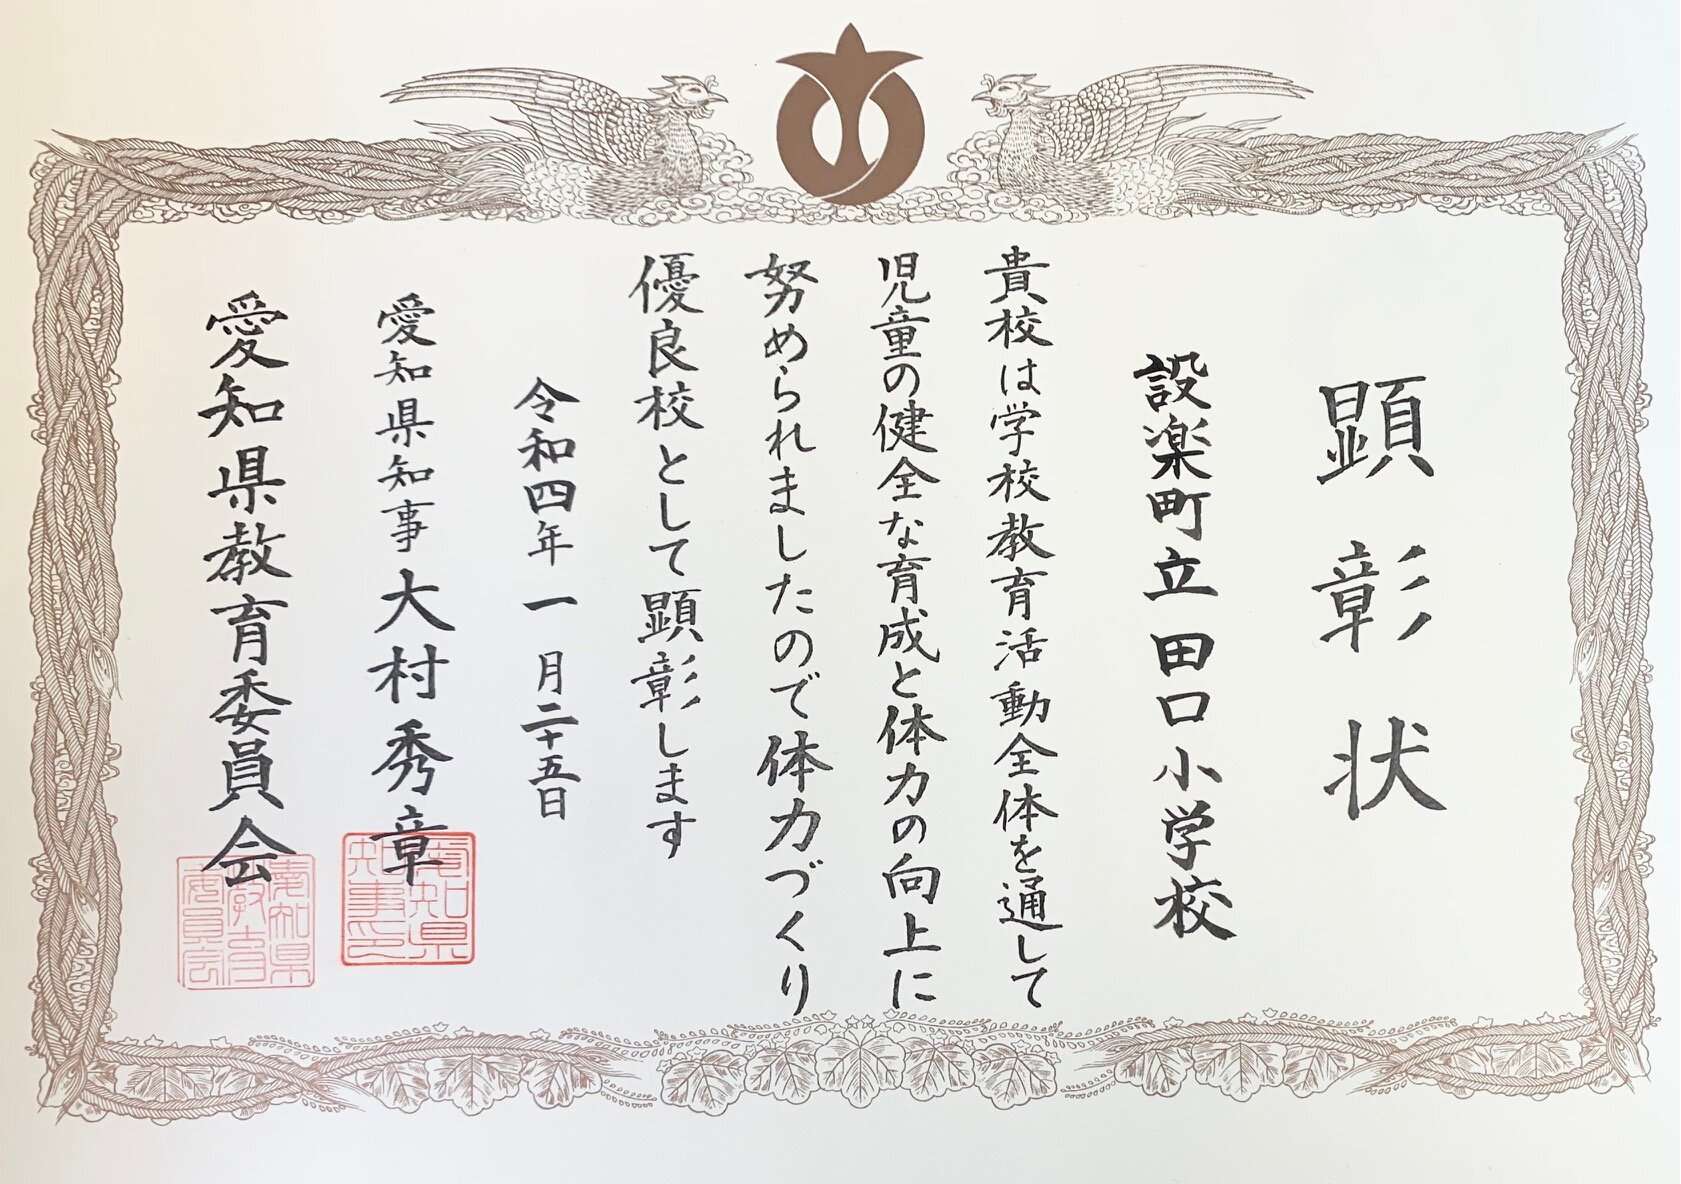 顕彰状
設楽町立田口小学校
貴校は学校教育活動全体を通して
児童の健全な育成と体力の向上に
努められましたので体力づくり
優良校として顕彰します
令和四年一月二十五日
愛知県知事大村秀章
愛知県知事印
愛知県教育委員会
愛知県教育委員会